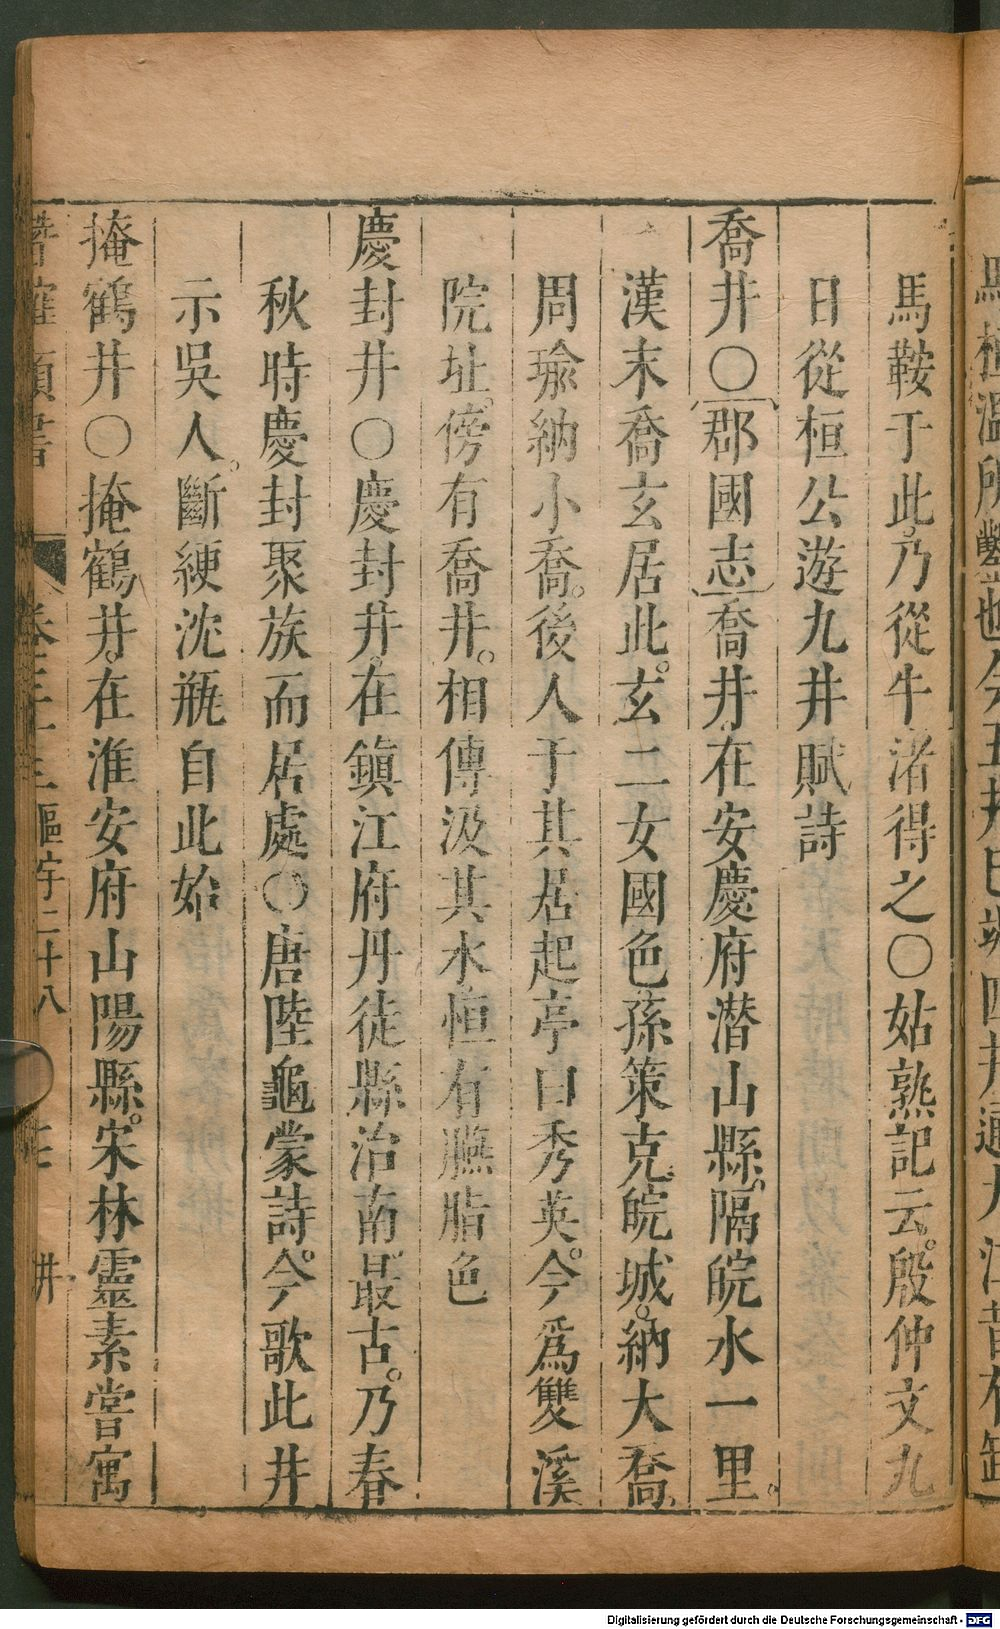 馬鞍于此乃從牛渚得之〇姑熟記云。殷仲文九
日從桓公遊九井賦詩
喬井〇郡國志喬井在安慶府潛山縣。隔皖水一里。
漢末喬玄居此。玄二女國色孫策克皖城。納大喬。
周瑜納小喬。後人于其居起亭曰秀英。今爲雙溪
院址。傍有喬井。相傳汲其水恒有臙脂色
慶封井〇慶封井。在鎮江府丹徒縣治南。最古。乃春
秋時慶封聚族而居處〇唐陸龜蒙詩。今歌此井
示吳人。斷綆沈瓶自此始
掩鶴井〇掩鶴井。在淮安府山陽縣。宋林靈素嘗寓
卷三十三 區字二十八 井
Digitalisierung gefördert durch die Deutsche Forschungsgemeinschaft - DFG